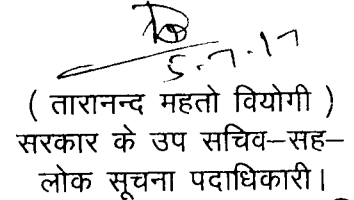 5.7.17
( तारानन्द महतो वियोगी )
सरकार के उप सचिव–सह–
लोक सूचना पदाधिकारी।